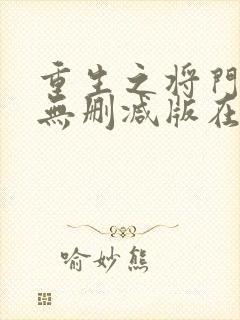 重生之将門
無删减版在
喻妙熊